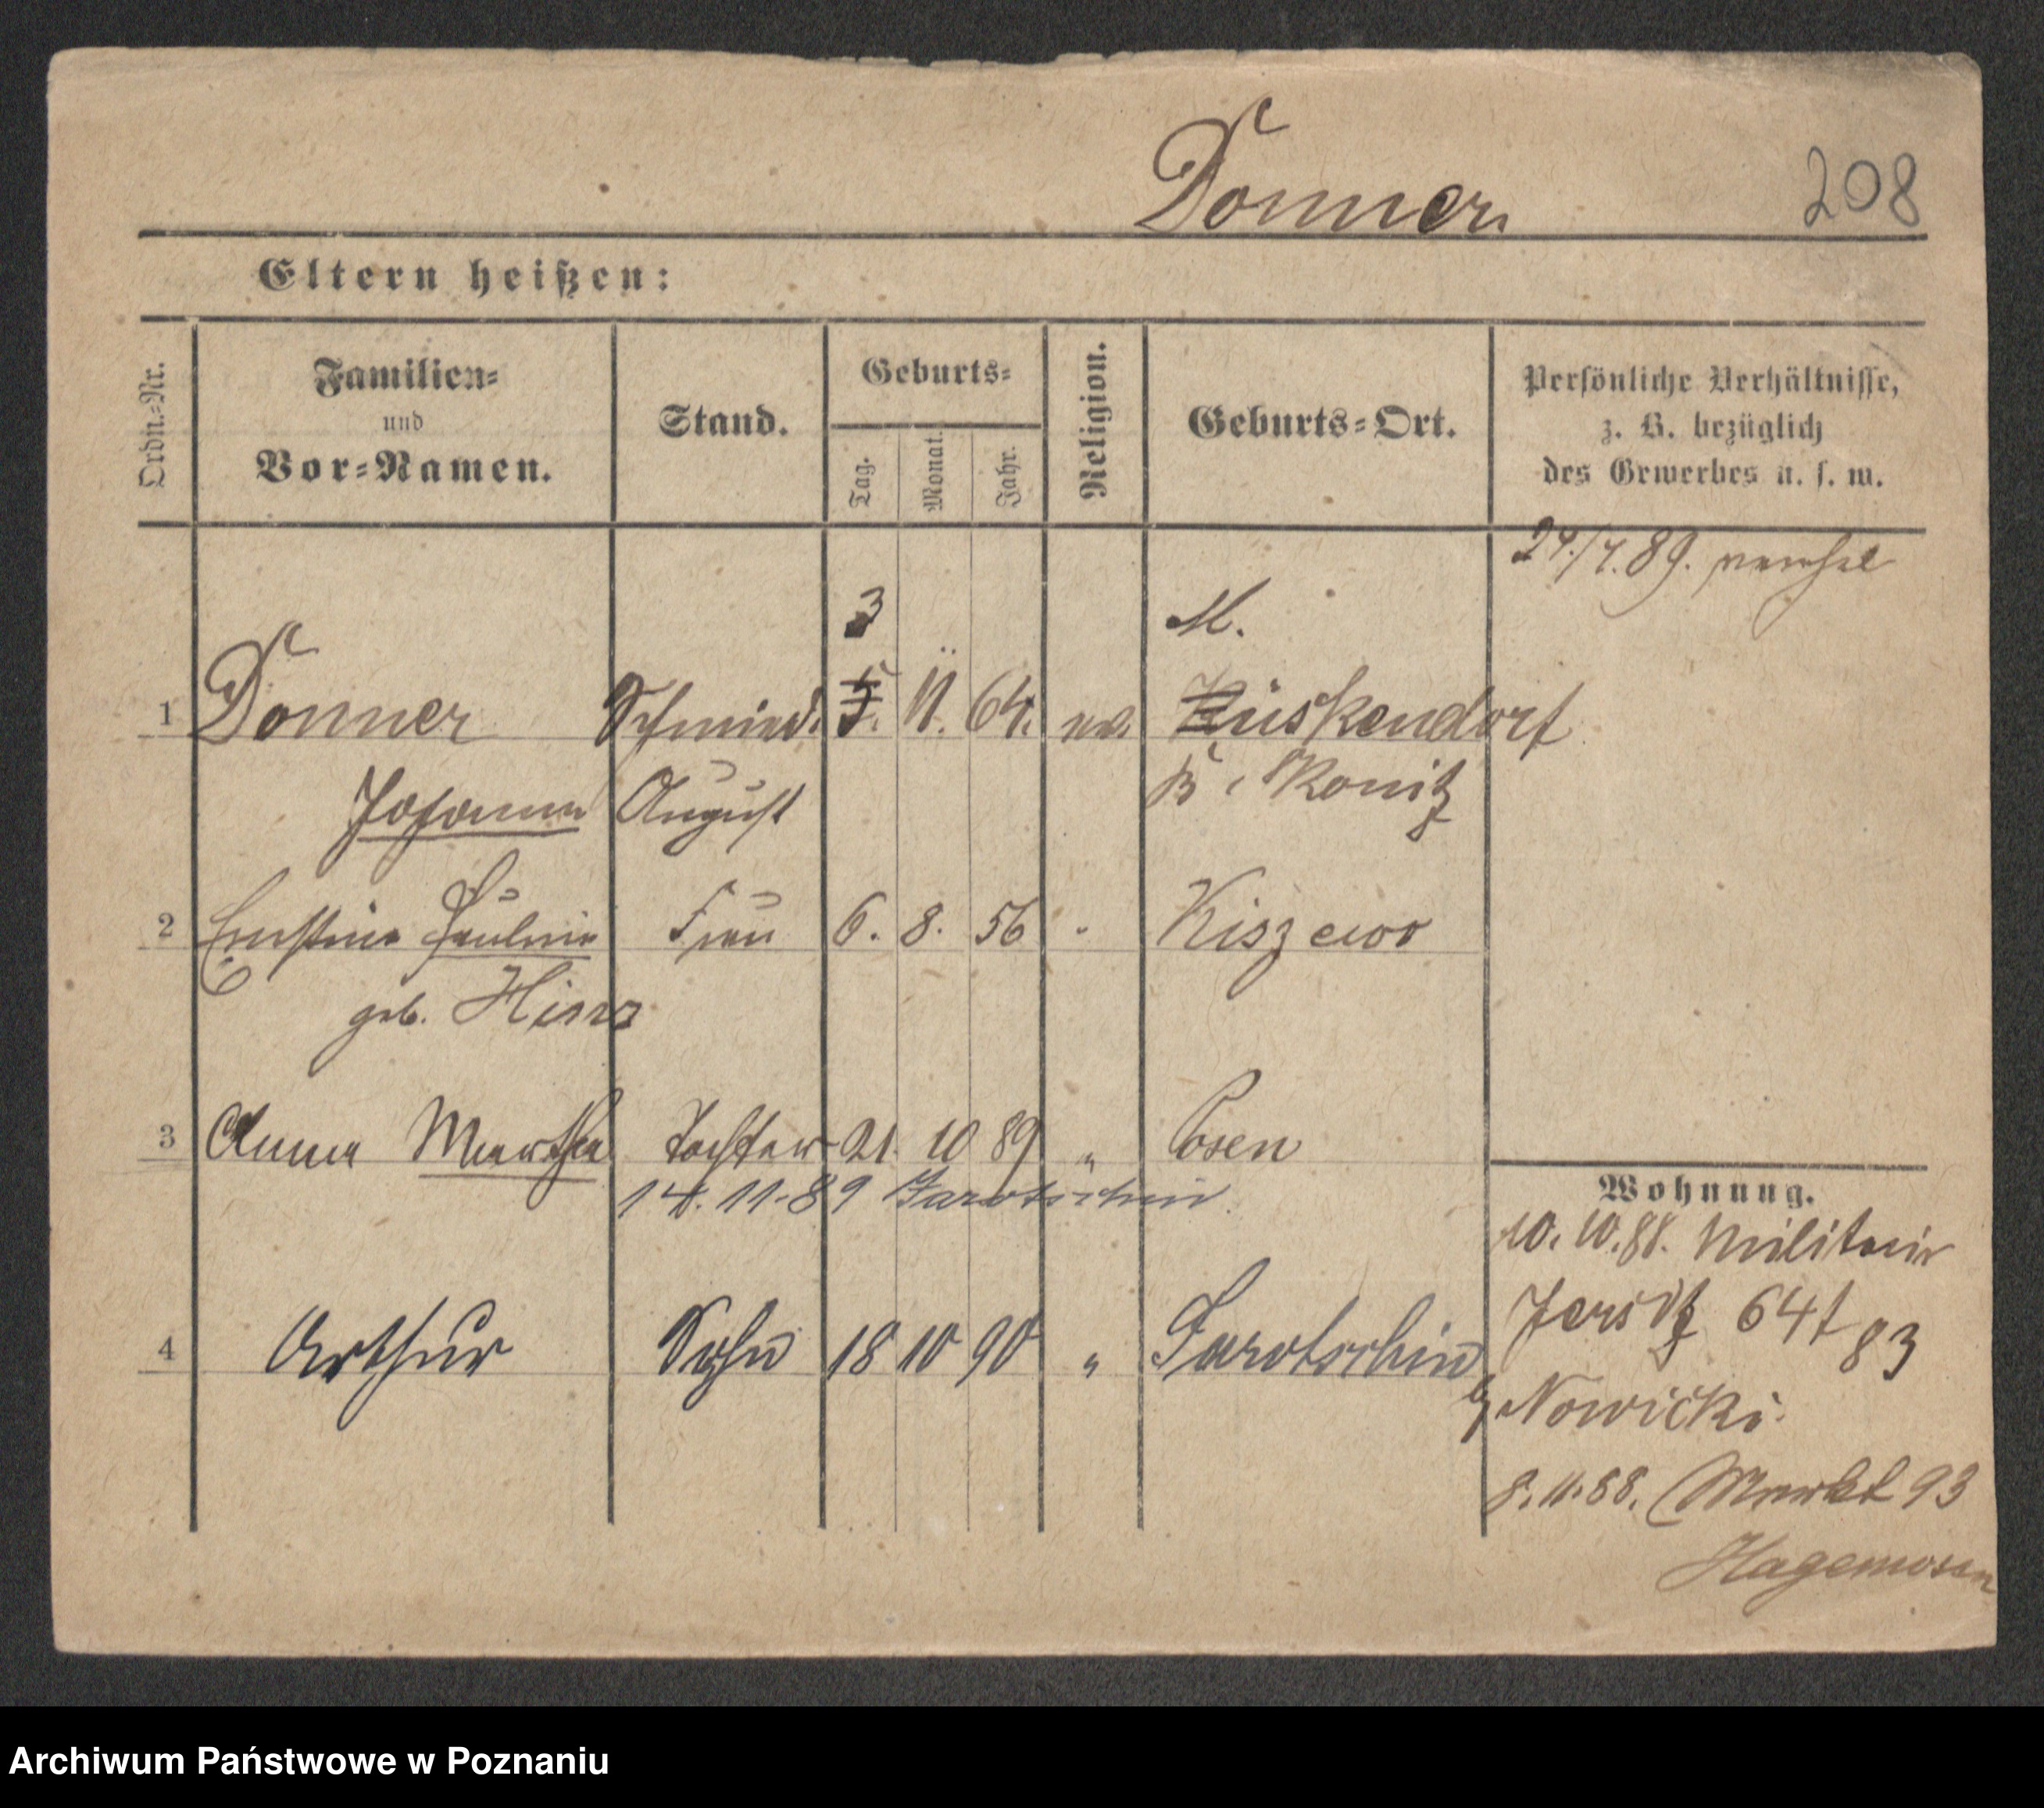 Donner
208
Eltern heißen:
Ordn.-Nr.
Familien-
und
Vor-Namen.
Stand.
Geburts-
Tag.
Monat.
Jahr.
Religion.
Geburts-Ort.
Persönliche Verhältnisse,
z. B. bezüglich
des Gewerbes u. s. w.
24./7.89.
3
M.
1 Donner Schmied. 5. 11. 64. ev. Küskendorf
Johann August Kr. Konitz
2 Ernstine Pauline Frau 6. 8. 56 Kiszewo
geb. Hinz
3 Anna Martha Tochter 21. 10 89 " Posen
14.11.89 Jarotschin.
4 Arthur Sohn 18 10 90 " Jarotschin
Wohnung.
10.10.88. Militair
Jersitz 64 83
b/ Nowicki.
8.11.88. Markt 93
Archiwum Państwowe w Poznaniu